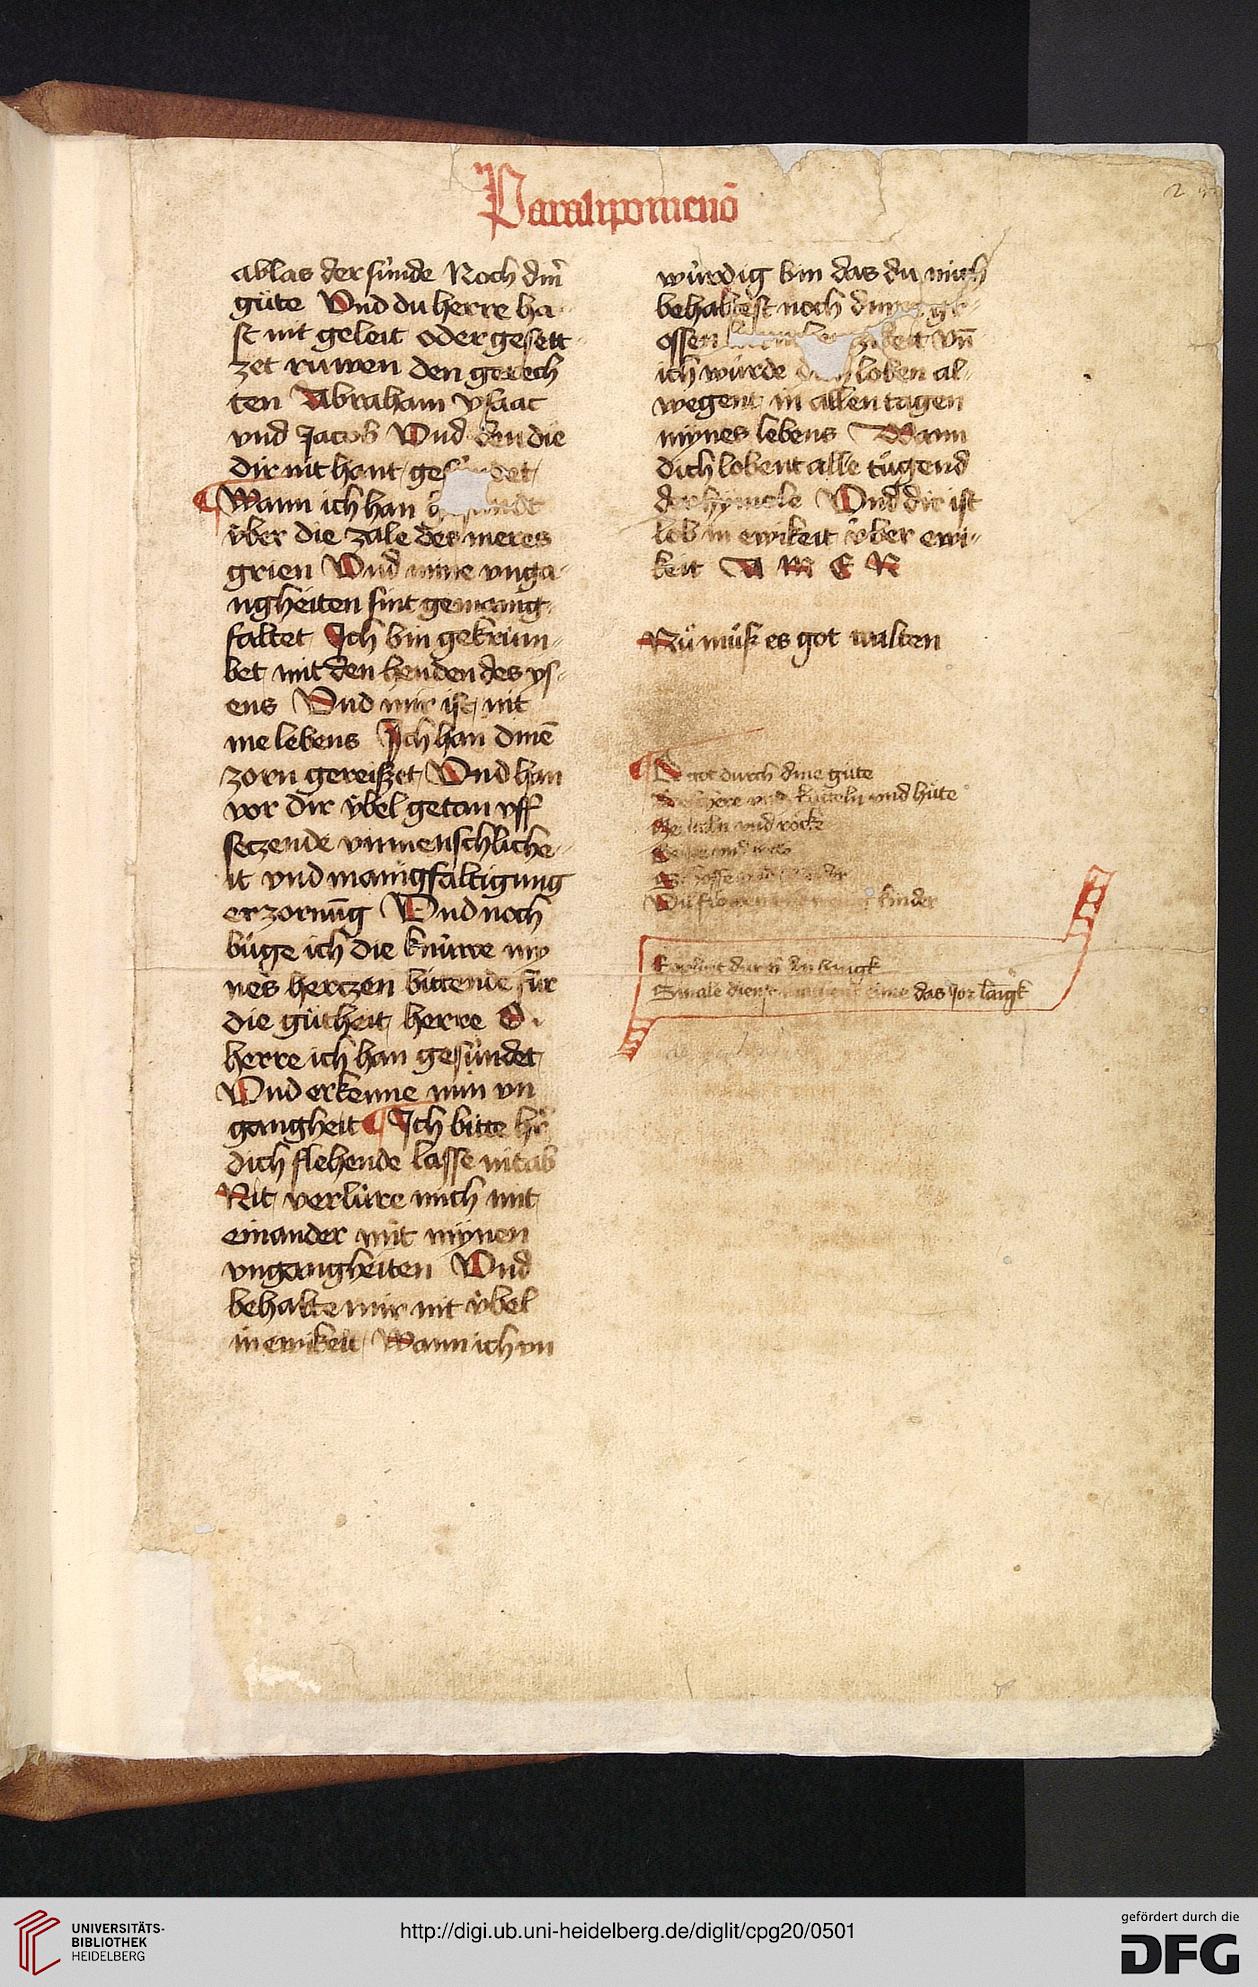 Paralipomenō
2
ablas der sünde Noch dinr̄
güte Vnd du herre ha-
st nit geleit oder gesett-
zet ruwen den gerech
ten Abraham ysaac
vnd Jacob Vnd den die
dir nit hant
Wann ich han
v̈ber die zale des meres
grien Vnd mine vnga-
ngheiten sint gemanig
faltet Ich bin gekrüm-
bet mit den benden des ys-
ens Vnd mir ist nit
me lebens Ich han dinē
zorn gereisset Vnd han
vor dir v̈bel getan vff
seczende vnmenschliche-
it vnd manigfaltigung
erzornūg Vnd noch
büge ich die knüwe my
nes herczen bittende für
die gütheit herre O.
herre ich han gesündet
Vnd erkenne min vn
gangheit Ich bitte hr̄
dich flehende lasse nit ab
Nit verlüre mich mit
einander mit mynen
vngangheiten Vnd
behalte mir nit v̈bel
in ewikeit Wann ich vn
würdig bin das du mich
behaltest noch diner gr-
ossen vn̄
ich würde loben al-
wegent in allen tagen
mynes lebens Wann
dich lobent alle tügend
der hymele Vnd dir ist
lob in ewikeit v̈ber ewi-
keit A M E N
Nü müss es got walten
O got durch dine güte
Beschere vns kügeln vnd hüte
vnd röcke
kinder
das jor langk
UNIVERSITÄTS-
BIBLIOTHEK
HEIDELBERG
http://digi.ub.uni-heidelberg.de/diglit/cpg20/0501
gefördert durch die
DFG